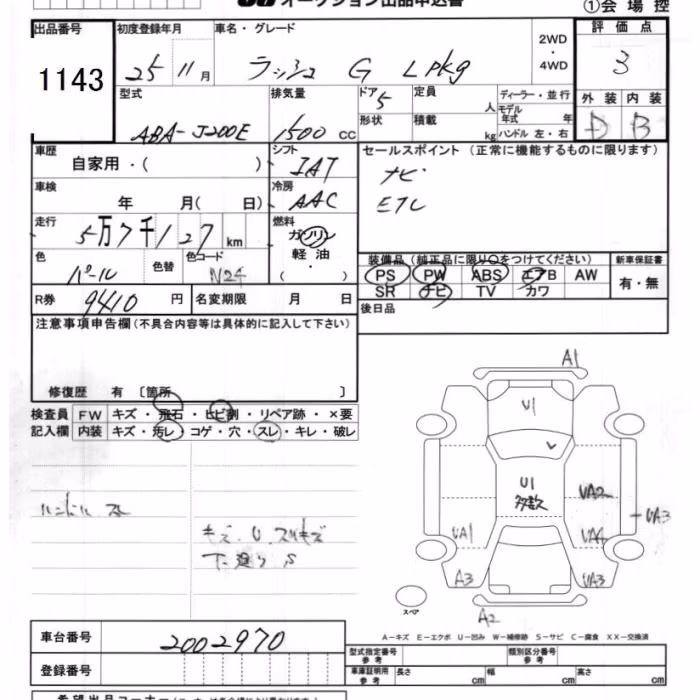 オークション出品申込書
①会場控
出品番号
1143
初度登録年月
25 11 月
車名・グレード
ラッシュ G Lpkg
2WD・4WD
評価点
3
型式
ABA-J200E
排気量
1500 cc
ドア
5
定員
人
形状
積載
kg
ディーラー・並行
モデル年式 年
ハンドル 左・右
外装 内装
D B
車歴
自家用・( )
シフト
IAT
冷房
AAC
セールスポイント (正常に機能するものに限ります)
ナビ
ETC
車検
年 月( 日)
走行
5万7千127 km
燃料
ガソリン
軽油
( ・ )
色
パール
色替
色コード
N24
装備品 (純正品に限り○をつけてください)
PS PW ABS エアB AW
SR ナビ TV カワ
新車保証書
有・無
R券
9410 円
名変期限 月 日
後日品
注意事項申告欄(不具合内容等は具体的に記入して下さい)
修復歴 有 〔箇所 〕
検査員
記入欄
FW キズ・飛石・ヒビ割・リペア跡・×要
内装 キズ・汚レ・コゲ・穴・スレ・キレ・破レ
ハンドル スレ
キズ.U.スリキズ
下廻り S
A1
U1
U1
多数
UA2
UA3
UA1
UA4
A3
UA3
A2
スペア
A-キズ E-エクボ U-凹み W-補修跡 S-サビ C-腐食 XX-交換済
車台番号
2002970
登録番号
型式指定番号 参考
類別区分番号 参考
車庫証明用 参考
長さ cm 幅 cm 高さ cm